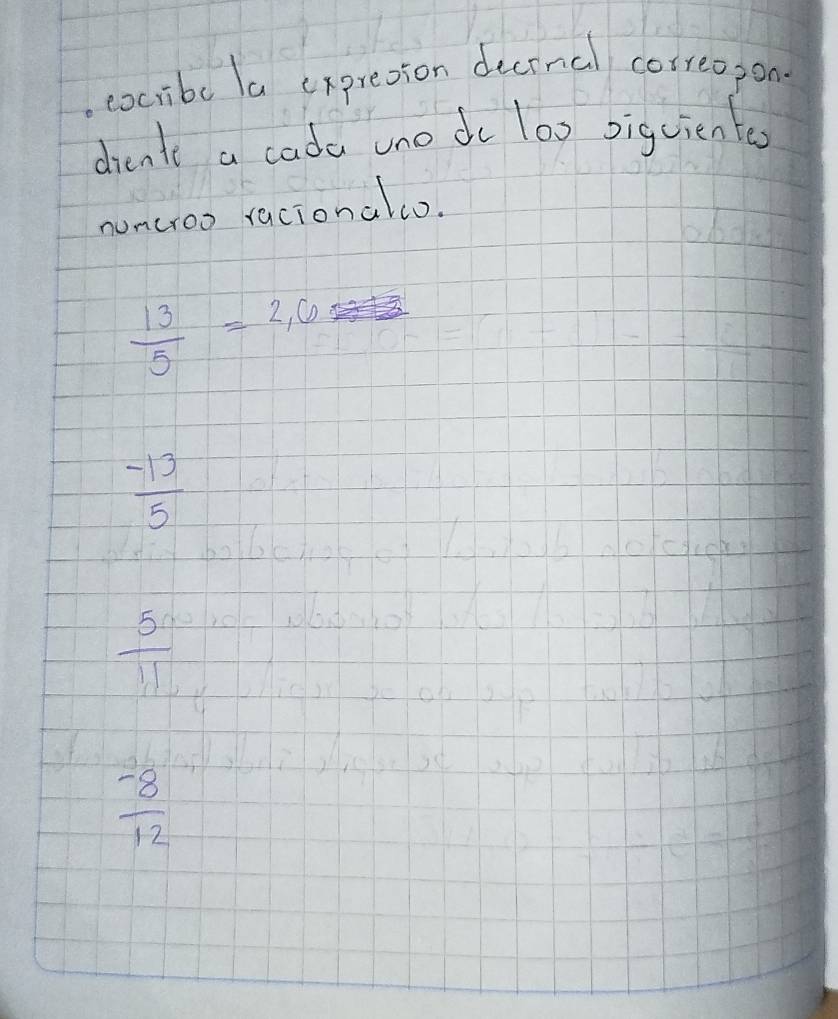 . escribe la expresion decimal correspon-
diente a cada uno de los siguientes
numeros racionales.
13/5 = 2,6
-13/5
5/11
-8/12